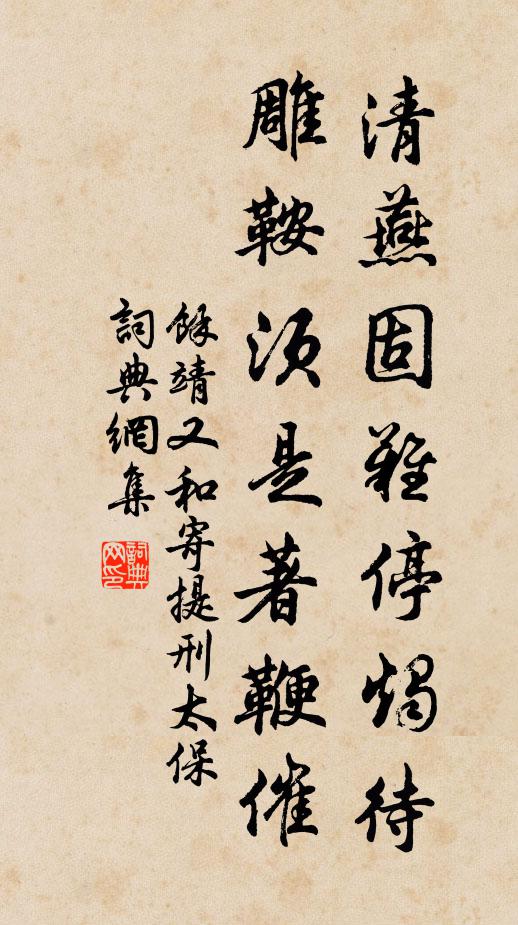 清燕固難停燭待
雕鞍須是著鞭催
餘靖又和寄提刑太保
詞典網集
詞典网印